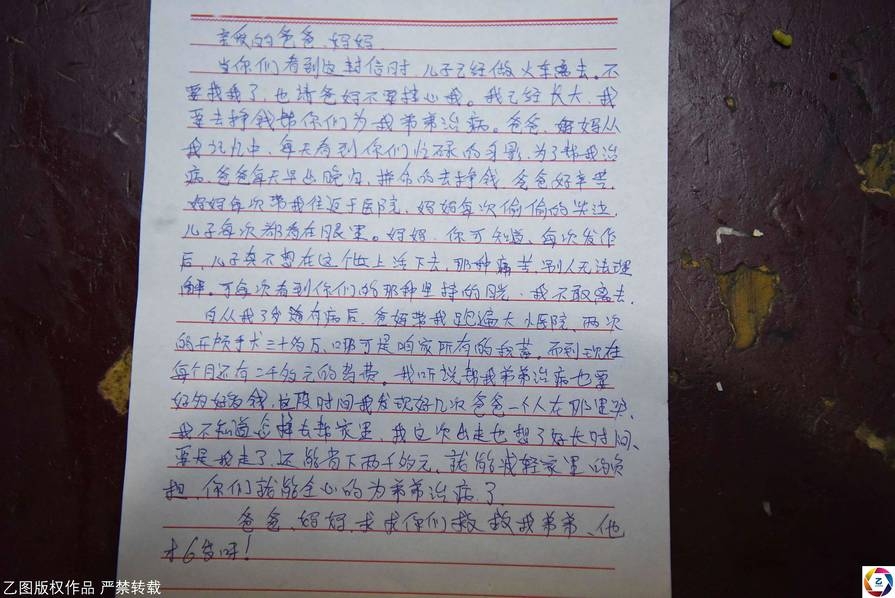 亲爱的爸爸、妈妈
当你们看到这封信时,儿子已经做火车离去。不
要找我了,也请爸妈不要担心我。我已经长大,我
要去挣钱帮你们为我弟弟治病。爸爸、妈妈从
我记力中,每天看到你们忙碌的身影,为了帮我治
病,爸爸每天早出晚归,拼命的去挣钱,爸爸好辛苦,
妈妈每次带我往返于医院,妈妈每次偷偷的哭泣,
儿子每次都看在眼里。妈妈,你可知道,每次发作
后,儿子真不想在这个世上活下去,那种痛苦,别人无法理
解。可每次看到你们的那种坚持的目光,我不敢离去,
自从我3岁有病后,爸妈带我跑遍大小医院,两次
的开颅手术三十多万,那可是咱家所有的积蓄。而到现在
每个月还有二千多元的药费。我听说帮我弟弟治病也要
好多好多钱,这段时间我发现好几次爸爸一个人在那里哭,
我不知道怎样去帮家里,我这次出走也想了好长时间、
要是我走了,还能省下两千多元,就能减轻家里的负
担,你们就能全心的为弟弟治病了
爸爸、妈妈,求求你们救救我弟弟、他
才6岁呀!
乙图版权作品 严禁转载
乙